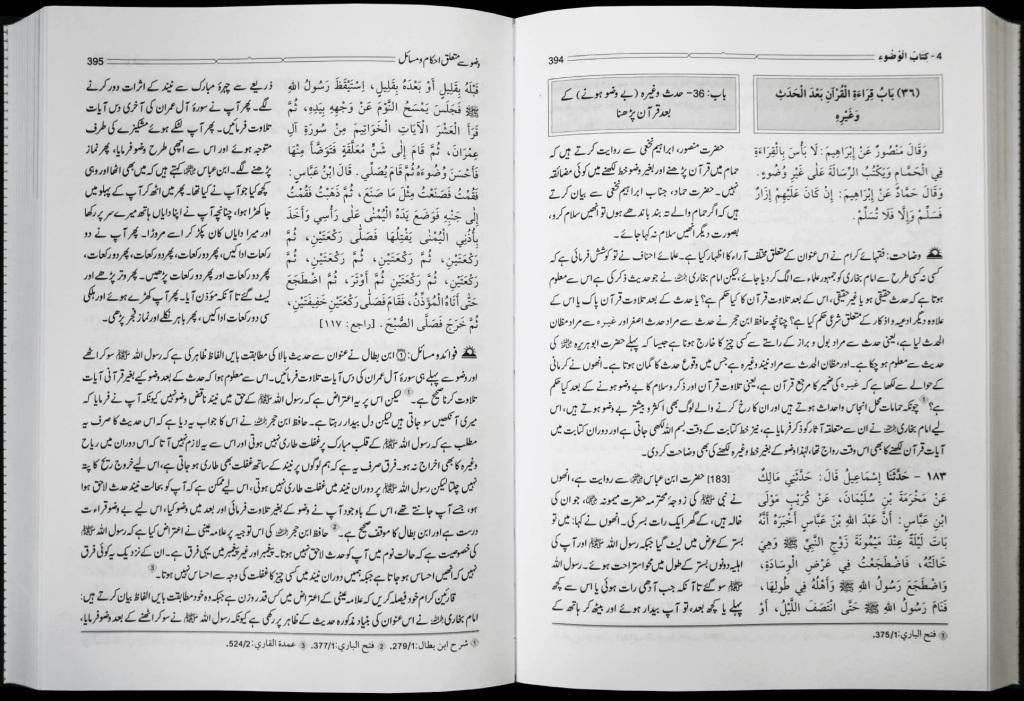 4- كِتَابُ الْوُضُوءِ
394
(٣٦) بَابُ قِرَاءَةِ الْقُرْآنِ بَعْدَ الْحَدَثِ
وَغَيْرِهِ
باب: 36- حدث وغیرہ (بے وضو ہونے) کے
بعد قرآن پڑھنا
وَقَالَ مَنْصُورٌ عَنْ إِبْرَاهِيمَ: لَا بَأْسَ بِالْقِرَاءَةِ
فِي الْحَمَّامِ وَيَكْتُبُ الرِّسَالَةَ عَلَى غَيْرِ وُضُوءٍ.
وَقَالَ حَمَّادٌ عَنْ إِبْرَاهِيمَ: إِنْ كَانَ عَلَيْهِمْ إِزَارٌ
فَسَلِّمْ وَإِلَّا فَلَا تُسَلِّمْ.
حضرت منصور، ابراہیم نخعی سے روایت کرتے ہیں کہ
حمام میں قرآن پڑھنے اور بغیر وضو خط لکھنے میں کوئی مضائقہ
نہیں۔ حضرت حماد، جناب ابراہیم نخعی سے بیان کرتے
ہیں کہ اگر حمام والے تہ بند باندھے ہوں تو انھیں سلام کرو،
بصورت دیگر انھیں سلام نہ کہا جائے۔
وضاحت: فقہائے کرام نے اس عنوان کے متعلق مختلف آراء کا اظہار کیا ہے۔ علمائے احناف نے تو کوشش فرمائی ہے کہ
کسی نہ کسی طرح سے امام بخاری کو جمہور علماء سے الگ کر دیا جائے، لیکن امام بخاری رحمہ اللہ نے جو حدیث ذکر کی ہے اس سے معلوم
ہوتا ہے کہ حدث حقیقی ہو یا غیر حقیقی، اس کے بعد تلاوت قرآن کا کیا حکم ہے؟ یا حدث کے بعد تلاوت قرآن پاک یا اس کے
علاوہ دیگر ادعیہ و اذکار کے متعلق شرعی حکم کیا ہے؟ چنانچہ حافظ ابن حجر نے حدث سے مراد حدث اصغر اور غیرہ سے مراد مظان
الحدث لیا ہے، یعنی حدث سے مراد بول و براز کے راستے سے کسی چیز کا خارج ہونا ہے جیسا کہ پہلے حضرت ابو ہریرہ کی
حدیث سے معلوم ہو چکا ہے۔ اور مظان الحدث سے مراد نیند وغیرہ ہے جس میں وقوع حدث کا گمان ہوتا ہے۔ انھوں نے کرمانی
کے حوالے سے لکھا ہے کہ غیرہ کی ضمیر کا مرجع قرآن ہے، یعنی تلاوت قرآن اور ذکر و سلام کا بے وضو ہونے کے بعد کیا حکم
ہے؟① چونکہ حمامات محل انجاس و احداث ہوتے ہیں اور ان کا رخ کرنے والے لوگ بھی اکثر و بیشتر بے وضو ہوتے ہیں، اس
لیے امام بخاری رحمہ اللہ نے ان سے متعلقہ آثار کو ذکر فرمایا ہے، نیز خط کتابت کے وقت بسم اللہ لکھی جاتی ہے اور دوران کتابت میں
آیات قرآن لکھنے کا بھی اس وقت رواج تھا، لہٰذا وضو کے بغیر خط وغیرہ لکھنے کی بھی وضاحت کر دی۔
١٨٣ - حَدَّثَنَا إِسْمَاعِيلُ قَالَ: حَدَّثَنِي مَالِكٌ
عَنْ مَخْرَمَةَ بْنِ سُلَيْمَانَ، عَنْ كُرَيْبٍ مَوْلَى
ابْنِ عَبَّاسٍ: أَنَّ عَبْدَ اللهِ بْنَ عَبَّاسٍ أَخْبَرَهُ أَنَّهُ
بَاتَ لَيْلَةً عِنْدَ مَيْمُونَةَ زَوْجِ النَّبِيِّ ﷺ وَهِيَ
خَالَتُهُ، فَاضْطَجَعْتُ فِي عَرْضِ الْوِسَادَةِ،
وَاضْطَجَعَ رَسُولُ اللهِ ﷺ وَأَهْلُهُ فِي طُولِهَا،
فَنَامَ رَسُولُ اللهِ ﷺ حَتَّى انْتَصَفَ اللَّيْلُ، أَوْ
[183] حضرت ابن عباس سے روایت ہے، انھوں
نے نبی ﷺ کی زوجہ محترمہ حضرت میمونہ، جو ان کی
خالہ ہیں، کے گھر ایک رات بسر کی۔ انھوں نے کہا: میں تو
بستر کے عرض میں لیٹ گیا جبکہ رسول اللہ ﷺ اور آپ کی
اہلیہ دونوں بستر کے طول میں محو استراحت ہوئے۔ رسول اللہ
ﷺ سو گئے تا آنکہ جب آدھی رات ہوئی یا اس سے کچھ
پہلے یا کچھ بعد، تو آپ بیدار ہوئے اور بیٹھ کر ہاتھ کے
① فتح الباري: 375/1.
وضو سے متعلق احکام و مسائل
395
قَبْلَهُ بِقَلِيلٍ أَوْ بَعْدَهُ بِقَلِيلٍ، اِسْتَيْقَظَ رَسُولُ اللهِ
ﷺ فَجَلَسَ يَمْسَحُ النَّوْمَ عَنْ وَجْهِهِ بِيَدِهِ، ثُمَّ
قَرَأَ الْعَشْرَ الْآيَاتِ الْخَوَاتِيمَ مِنْ سُورَةِ آلِ
عِمْرَانَ، ثُمَّ قَامَ إِلَى شَنٍّ مُعَلَّقَةٍ فَتَوَضَّأَ مِنْهَا
فَأَحْسَنَ وُضُوءَهُ ثُمَّ قَامَ يُصَلِّي. قَالَ ابْنُ عَبَّاسٍ:
فَقُمْتُ فَصَنَعْتُ مِثْلَ مَا صَنَعَ، ثُمَّ ذَهَبْتُ فَقُمْتُ
إِلَى جَنْبِهِ فَوَضَعَ يَدَهُ الْيُمْنَى عَلَى رَأْسِي وَأَخَذَ
بِأُذُنِي الْيُمْنَى يَفْتِلُهَا فَصَلَّى رَكْعَتَيْنِ، ثُمَّ
رَكْعَتَيْنِ، ثُمَّ رَكْعَتَيْنِ، ثُمَّ رَكْعَتَيْنِ، ثُمَّ
رَكْعَتَيْنِ، ثُمَّ رَكْعَتَيْنِ ثُمَّ أَوْتَرَ، ثُمَّ اضْطَجَعَ
حَتَّى أَتَاهُ الْمُؤَذِّنُ، فَقَامَ فَصَلَّى رَكْعَتَيْنِ خَفِيفَتَيْنِ،
ثُمَّ خَرَجَ فَصَلَّى الصُّبْحَ. [راجع: ١١٧]
ذریعے سے چہرۂ مبارک سے نیند کے اثرات دور کرنے
لگے۔ پھر آپ نے سورۂ آل عمران کی آخری دس آیات
تلاوت فرمائیں۔ پھر آپ لٹکے ہوئے مشکیزے کی طرف
متوجہ ہوئے اور اس سے اچھی طرح وضو فرمایا، پھر نماز
پڑھنے لگے۔ ابن عباس کہتے ہیں کہ میں بھی اٹھا اور وہی
کچھ کیا جو آپ نے کیا تھا۔ پھر میں اٹھ کر آپ کے پہلو میں
جا کھڑا ہوا، چنانچہ آپ نے اپنا دایاں ہاتھ میرے سر پر رکھا
اور میرا دایاں کان پکڑ کر اسے مروڑا۔ پھر آپ نے دو
رکعات ادا کیں، پھر دو رکعات، پھر دو رکعات، پھر دو رکعات،
پھر دو رکعات اور پھر دو رکعات پڑھیں۔ پھر وتر پڑھے اور
لیٹ گئے تا آنکہ مؤذن آیا۔ پھر آپ کھڑے ہوئے اور ہلکی
سی دو رکعات ادا کیں، پھر باہر نکلے اور نماز فجر پڑھی۔
فوائد و مسائل: ① ابن بطال نے عنوان سے حدیث بالا کی مطابقت بایں الفاظ ظاہر کی ہے کہ رسول اللہ ﷺ سو کر اٹھے
اور وضو سے پہلے ہی سورۂ آل عمران کی دس آیات تلاوت فرمائیں۔ اس سے معلوم ہوا کہ حدث کے بعد وضو کیے بغیر قرآنی آیات
تلاوت کرنا صحیح ہے۔① لیکن اس پر یہ اعتراض ہے کہ رسول اللہ ﷺ کے حق میں نیند ناقض وضو نہیں کیونکہ آپ نے فرمایا کہ
میری آنکھیں سو جاتی ہیں لیکن دل بیدار رہتا ہے۔ حافظ ابن حجر رحمہ اللہ نے اس کا جواب یہ دیا ہے کہ اس حدیث کا صرف یہ
مطلب ہے کہ رسول اللہ ﷺ کے قلب مبارک پر غفلت طاری نہیں ہوتی اور اس سے یہ لازم نہیں آتا کہ اس دوران میں ریاح
وغیرہ کا بھی اخراج نہ ہو۔ فرق صرف یہ ہے کہ ہم لوگوں پر نیند کے ساتھ غفلت بھی طاری ہو جاتی ہے، اس لیے خروج ریح کا پتہ
نہیں چلتا لیکن رسول اللہ ﷺ پر دوران نیند میں غفلت طاری نہیں ہوتی، اس لیے ممکن ہے کہ آپ کو بحالت نیند حدث لاحق ہوا
ہو، جسے آپ جانتے تھے، اس کے باوجود آپ نے وضو کے بغیر تلاوت فرمائی اور بعد میں وضو کیا، اس لیے بے وضو قراءت
درست ہے اور ابن بطال کا موقف صحیح ہے۔② حافظ ابن حجر رحمہ اللہ کی اس توجیہ پر علامہ عینی نے اعتراض کیا ہے کہ رسول اللہ ﷺ
کی خصوصیت ہے کہ حالت نوم میں آپ کو حدث لاحق نہیں ہوتا۔ پیغمبر اور غیر پیغمبر میں یہی فرق ہے۔ ان کے نزدیک یہ کوئی فرق
نہیں کہ انھیں احساس ہو جاتا ہے جبکہ ہمیں دوران نیند میں کسی چیز کا غفلت کی وجہ سے احساس نہیں ہوتا۔③
قارئین کرام خود فیصلہ کریں کہ علامہ عینی کے اعتراض میں کس قدر وزن ہے جبکہ وہ خود مطابقت بایں الفاظ بیان کرتے ہیں:
امام بخاری رحمہ اللہ نے اس عنوان کی بنیاد مذکورہ حدیث کے ظاہر پر رکھی ہے کیونکہ رسول اللہ ﷺ نے سو کر اٹھنے کے بعد وضو فرمایا،
① شرح ابن بطال: 279/1. ② فتح الباري: 377/1. ③ عمدة القاري: 524/2.